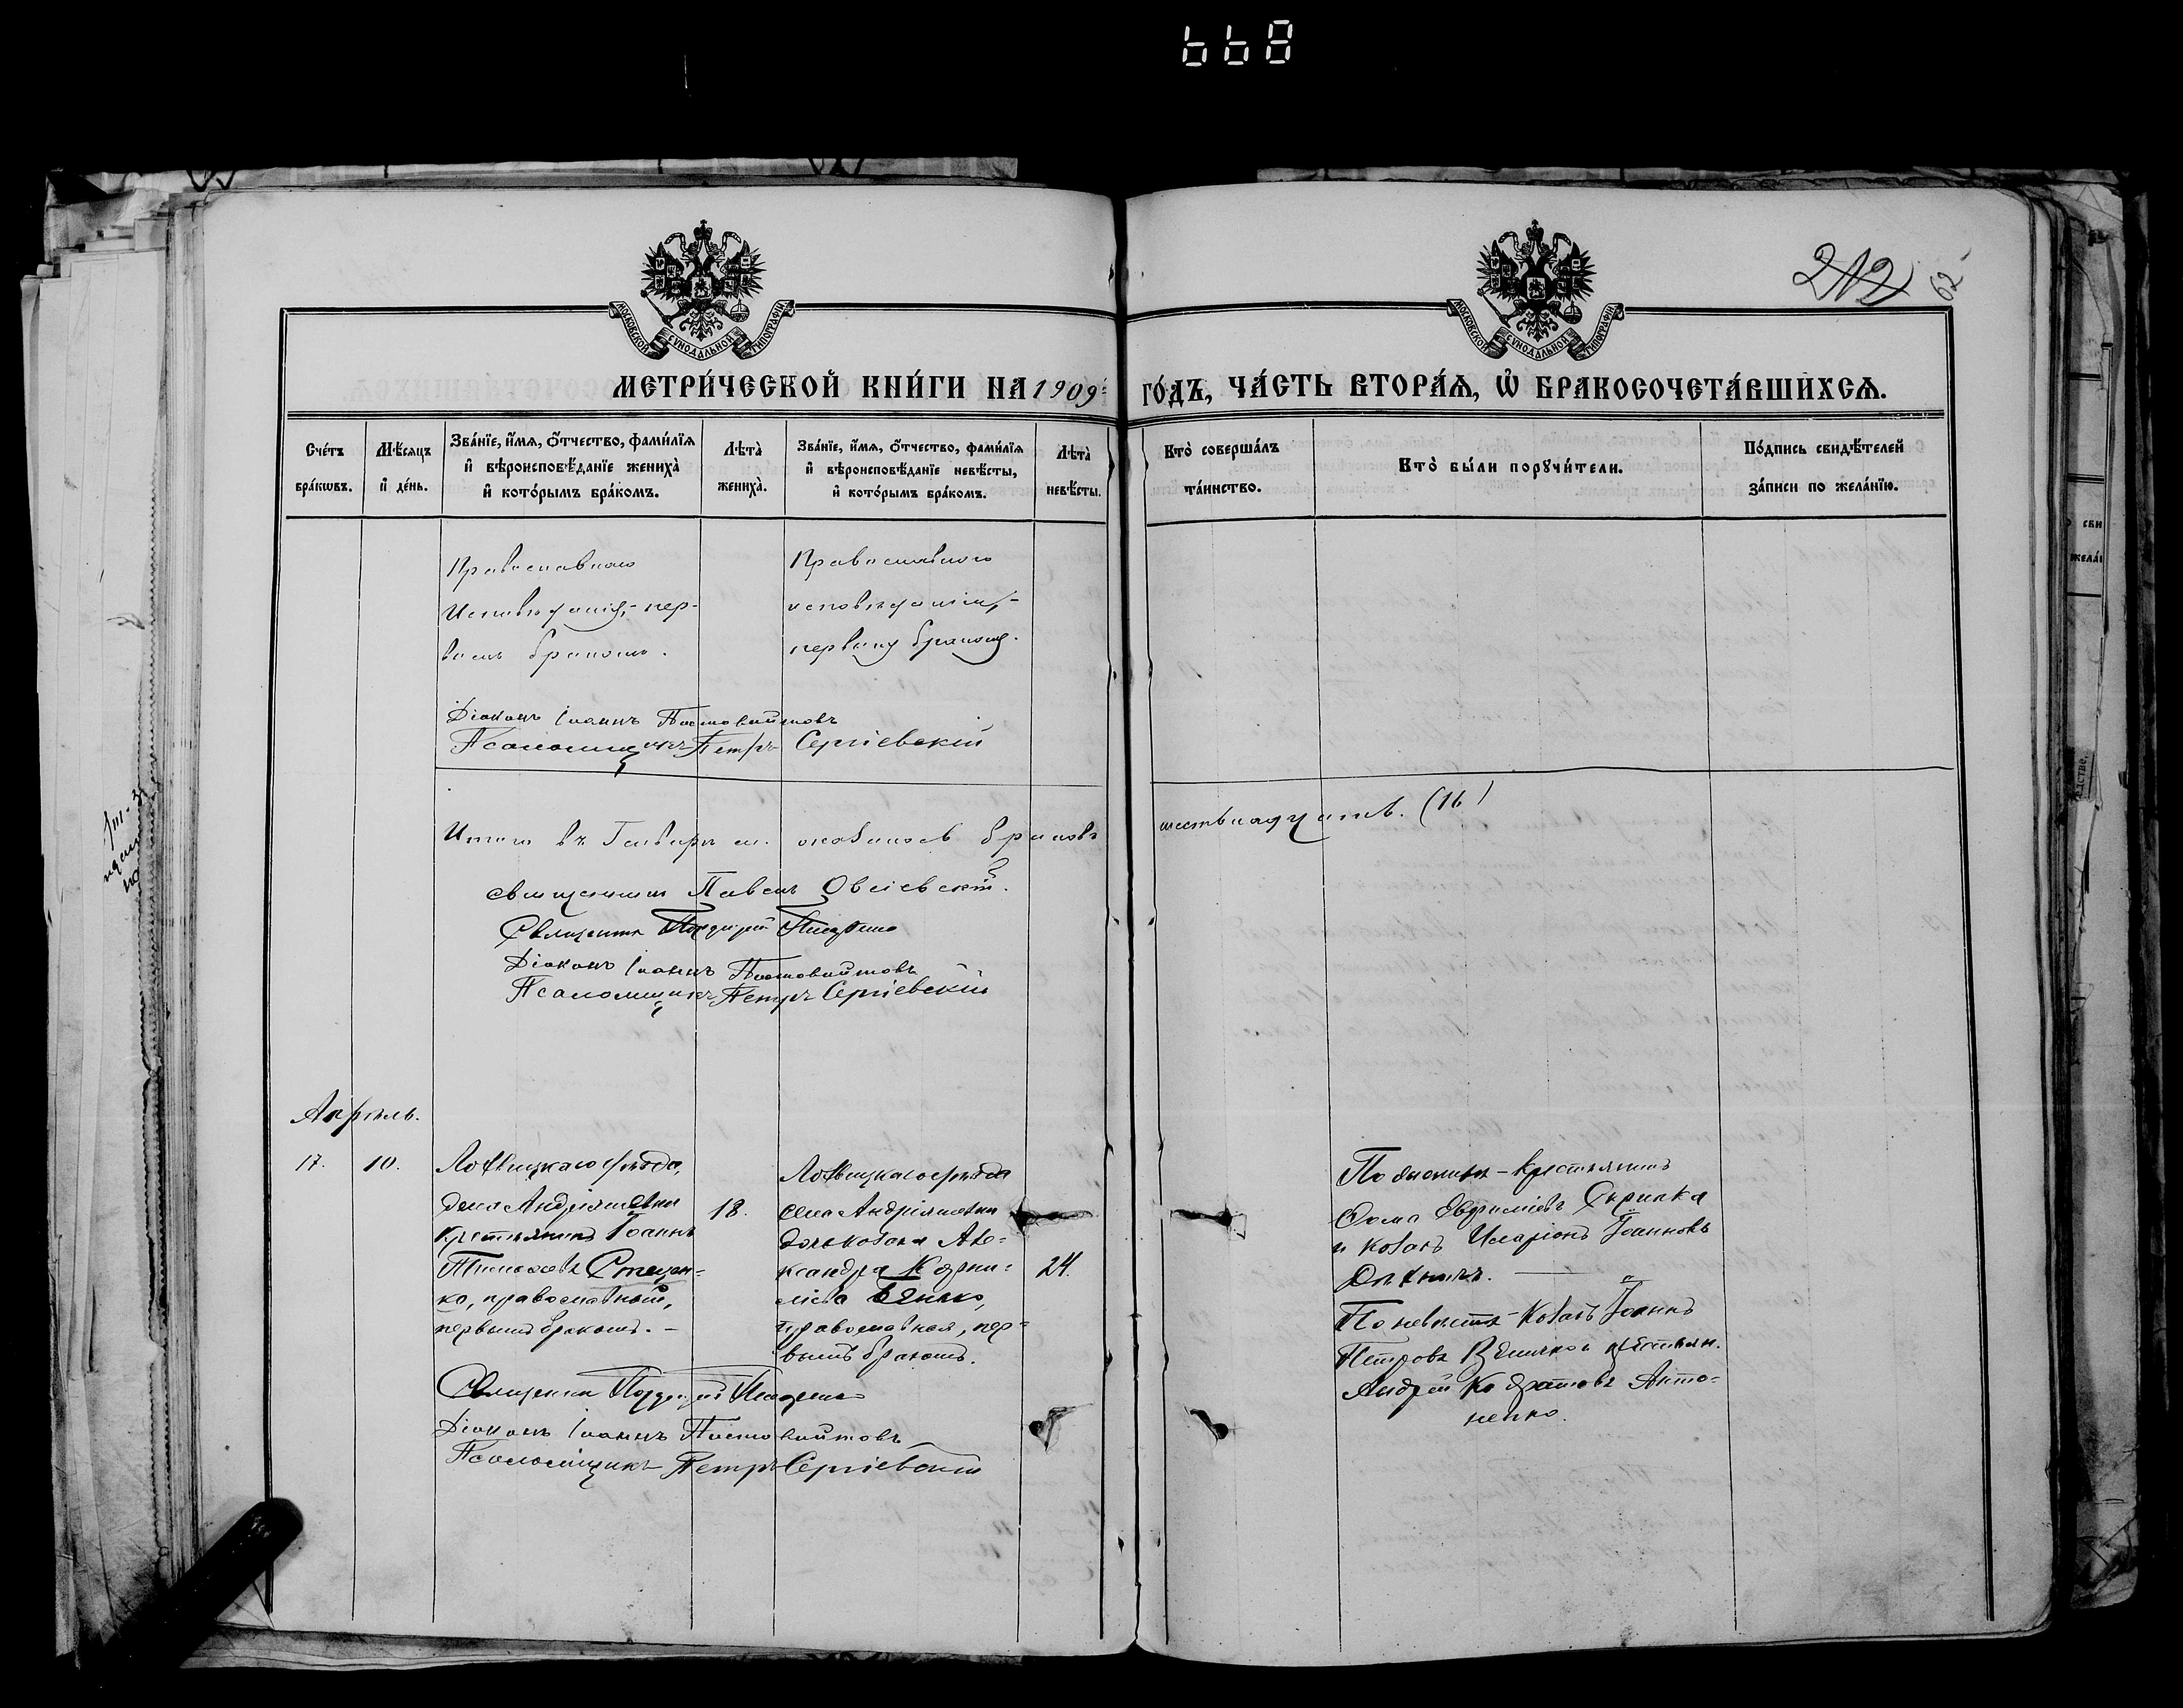 668
МОСКОВСКОЙ СѴНОДАЛЬНОЙ ТИПОГРАФІИ
МОСКОВСКОЙ СѴНОДАЛЬНОЙ ТИПОГРАФІИ
212 62
МЕТРИ́ЧЕСКОЙ КНИ́ГИ НА 1909 ГО́ДЪ, ЧА́СТЬ ВТОРА́Ѧ, Ѡ҆ БРАКОСОЧЕТА́ВШИХСѦ.
Сче́тъ бра́кѡвъ.
Мѣ́сѧцъ и҆ де́нь.
Зва́нїе, и҆́мѧ, ѻ҆́тчество, фами́лїѧ
и҆ вѣроисповѣ́данїе жениха̀
и҆ кото́рымъ бра́комъ.
Лѣта̀ жениха̀.
Зва́нїе, и҆́мѧ, ѻ҆́тчество, фами́лїѧ
и҆ вѣроисповѣ́данїе невѣ́сты,
и҆ кото́рымъ бра́комъ.
Лѣта̀ невѣ́сты.
Кто̀ соверша́лъ та́инство.
Кто̀ бы́ли порꙋчи́тели.
По́дпись свидѣ́телей за́писи по жела́нїю.
Православнаго
исповѣданія, пер-
вымъ бракомъ.
Православнаго
исповѣданія,
первымъ бракомъ.
Діаконъ Іоаннъ
Псаломщикъ Петръ Сергіевскій
Итого въ Январѣ м. оказалось браковъ шестнадцать. (16)
Священникъ Павелъ
Священникъ
Діаконъ Іоаннъ
Псаломщикъ Петръ Сергіевскій
Апрѣль.
17. 10.
Лохвицкаго уѣзда,
села Андріяшевки
крестьянинъ Іоаннъ
Тимоѳеевъ Стецен-
ко, православный,
первымъ бракомъ. —
18.
Лохвицкаго уѣзда
села Андріяшевки
дочь козака Але-
ксандра Корни-
ліева
православная, пер-
вымъ бракомъ.
24.
По женихѣ - крестьянинъ
Ѳома Евфиміевъ Скрипка
и козакъ Иларіонъ Іоанновъ
По невѣстѣ - козакъ Іоаннъ
Петровъ и крестьян.
Андрей Кодратовъ Анто-
ненко.
Священникъ
Діаконъ Іоаннъ
Псаломщикъ Петръ Сергіевскій